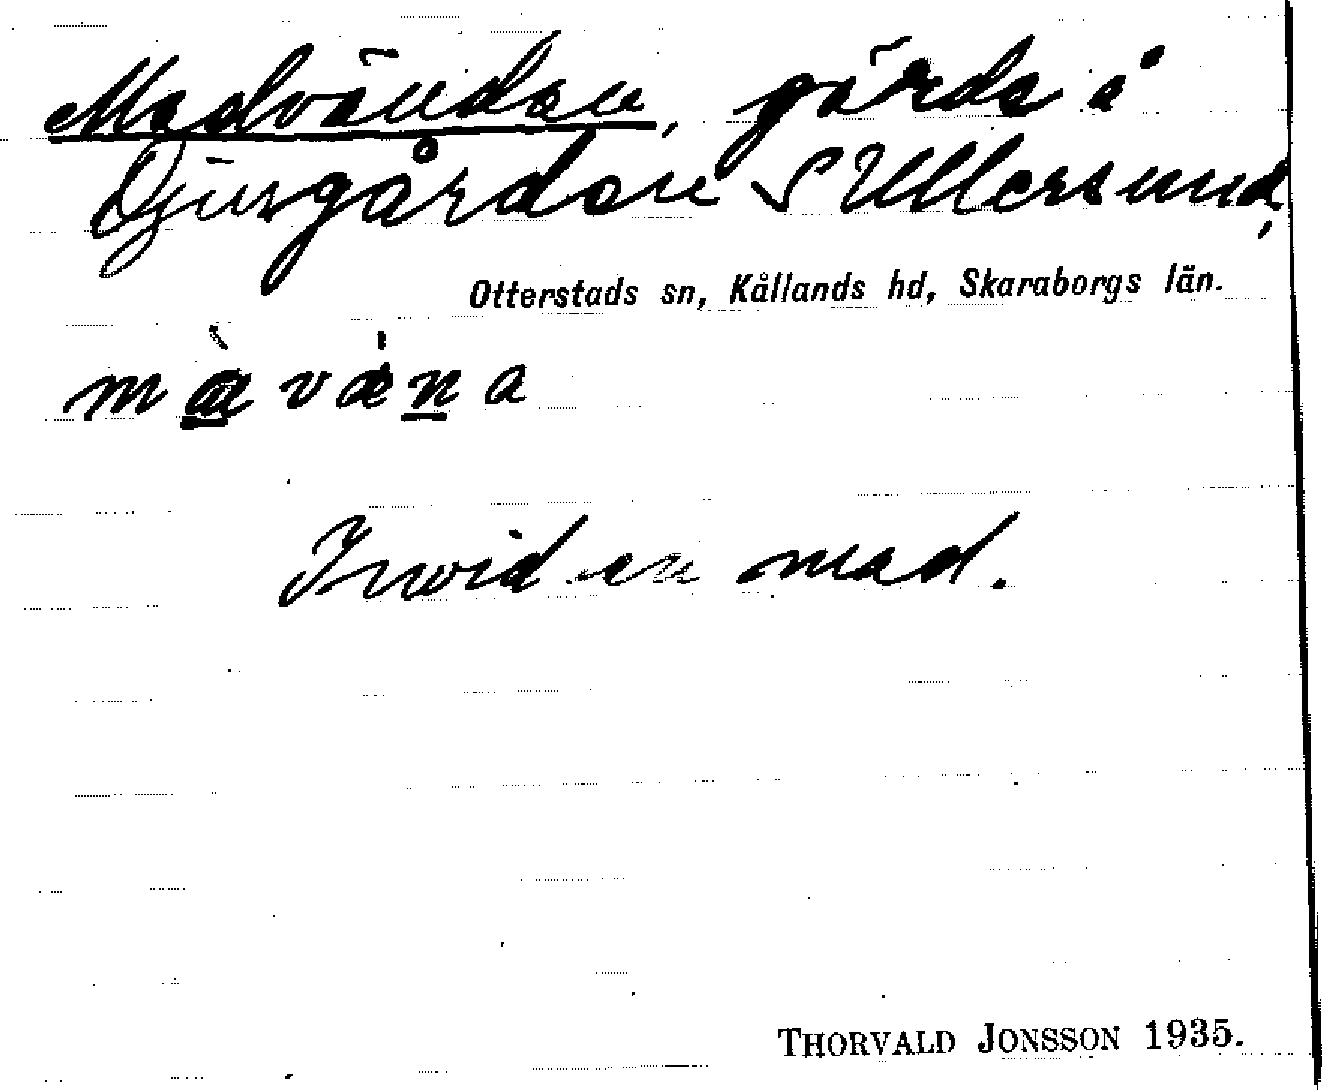 Madvändan, gärde å
Djurgården S Ullersund,
Otterstads sn, Kållands hd, Skaraborgs län.
màvǽna
Invid en mad.
THORVALD JONSSON 1935.